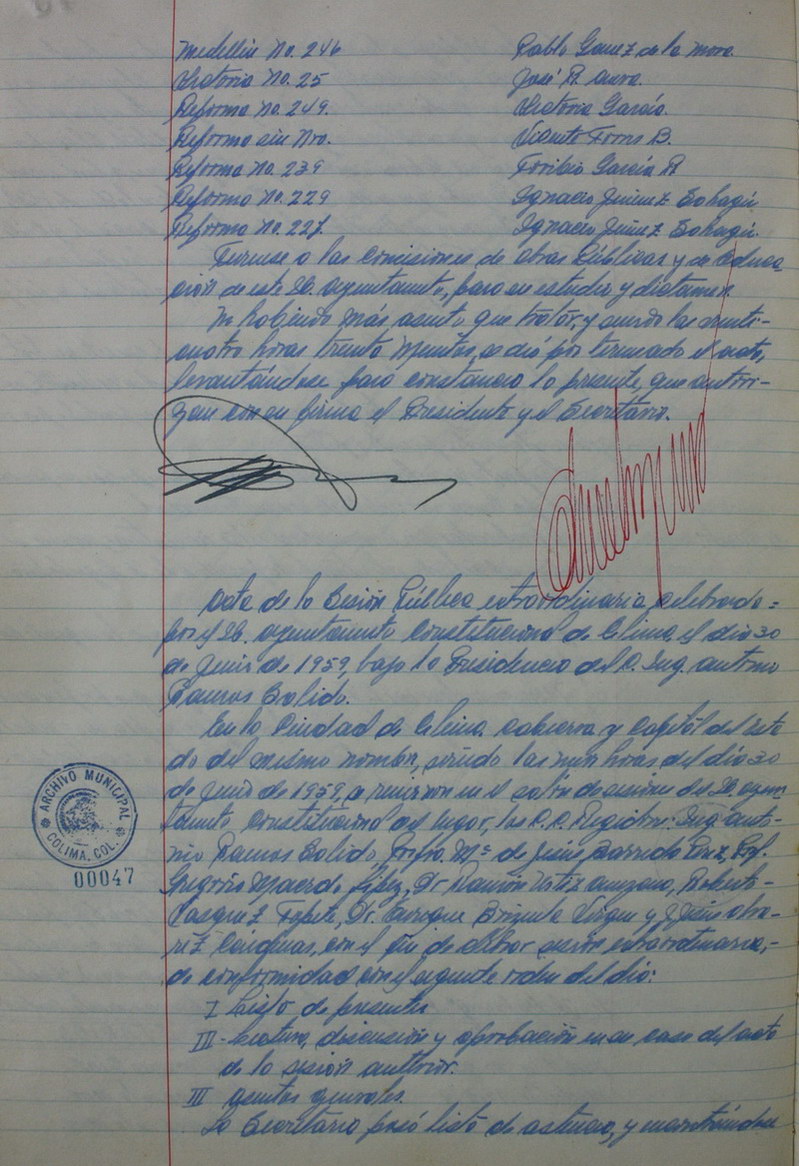 Medellín No. 246 Pablo Gomez de la Mora.
Victoria No. 25 José R
Reforma No. 249. Victoria García.
Reforma sin Nro. Vicente Torres B.
Reforma No. 239 Toribio García R
Reforma No. 229 Ignacio Jimenez
Reforma No. 227 Ignacio
Turnese a las Comisiones de Obras Públicas y de Educa
ción de este H. Ayuntamiento, para su estudio y dictamen.
No habiendo más asunto que tratar, y siendo las veinti-
cuatro horas treinta minutos, se dió por terminado el acto,
levantándose para constancia la presente, que autori-
zan con su firma el Presidente y el Secretario.
Acta de la Sesión Pública extraordinaria celebrada =
por el H. Ayuntamiento Constitucional de Colima, el día 30
de Junio de 1959, bajo la Presidencia del C. Ing. Antonio
Ramos Salido.
En la Ciudad de Colima, Cabecera y Capital del Esta
do del mismo nombre, siendo las horas del día 30
de Junio de 1959, se reunieron en el salón de sesiones del H. Ayun
tamiento Constitucional del lugar, los C.C. Regidores: Ing. Anto-
nio Ramos Salido, Profra. Ma. de Jesús Prof.
Gregorio Macedo López, Dr. Ramón Roberto
Vasquez Dr. Enrique Brizuela Virgen y J. Jesús Alva
rez Cárdenas, con el fin de celebrar sesión extraordinaria,-
de conformidad con el siguiente orden del día:
I Lista de presentes
III - Lectura, discusión y aprobación en su caso del acta
de la sesión anterior.
III Asuntos generales.
La Secretario pasó lista de asistencia, y
ARCHIVO MUNICIPAL
COLIMA, COL.
00047